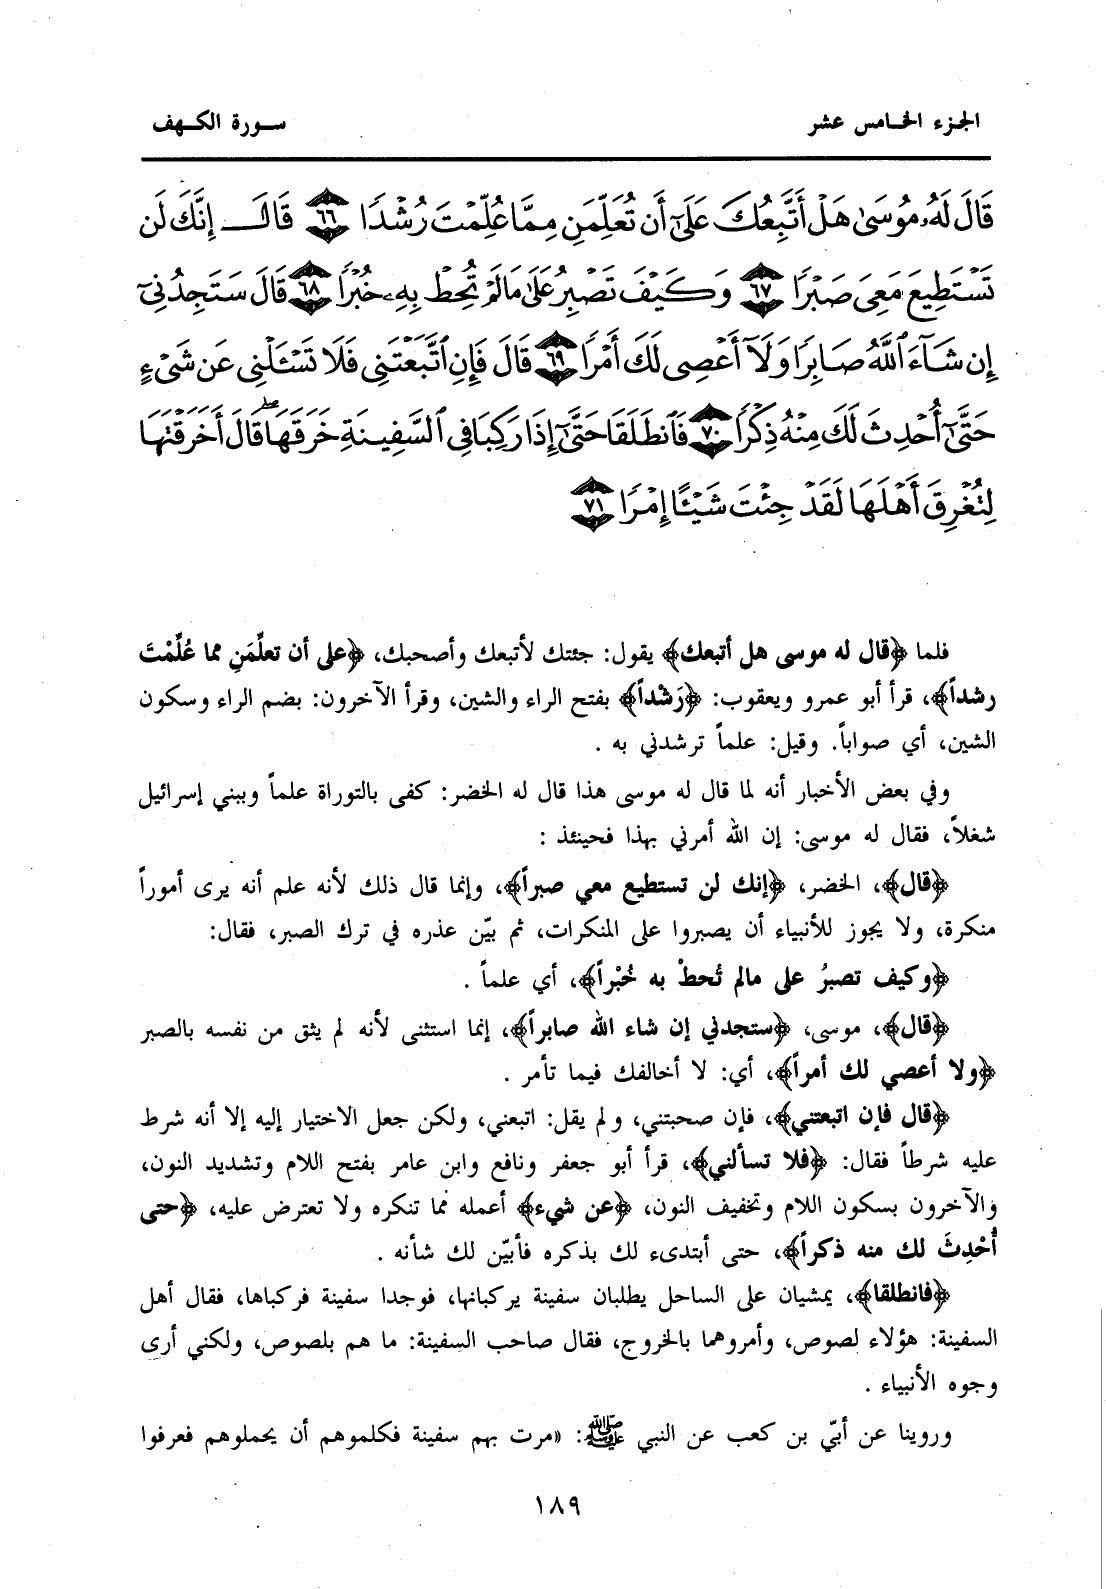 الجزء الخامس عشر
سورة الكهف
قَالَ لَهُۥ مُوسَىٰ هَلْ أَتَّبِعُكَ عَلَىٰٓ أَن تُعَلِّمَنِ مِمَّا عُلِّمْتَ رُشْدًا ٦٦ قَالَ إِنَّكَ لَن
تَسْتَطِيعَ مَعِىَ صَبْرًا ٦٧ وَكَيْفَ تَصْبِرُ عَلَىٰ مَا لَمْ تُحِطْ بِهِۦ خُبْرًا ٦٨ قَالَ سَتَجِدُنِىٓ
إِن شَآءَ ٱللَّهُ صَابِرًا وَلَآ أَعْصِى لَكَ أَمْرًا ٦٩ قَالَ فَإِنِ ٱتَّبَعْتَنِى فَلَا تَسْـَٔلْنِى عَن شَىْءٍ
حَتَّىٰٓ أُحْدِثَ لَكَ مِنْهُ ذِكْرًا ٧٠ فَٱنطَلَقَا حَتَّىٰٓ إِذَا رَكِبَا فِى ٱلسَّفِينَةِ خَرَقَهَا ۖ قَالَ أَخَرَقْتَهَا
لِتُغْرِقَ أَهْلَهَا لَقَدْ جِئْتَ شَيْـًٔا إِمْرًا ٧١
فلما ﴿قال له موسى هل أتبعك﴾ يقول: جئتك لأتبعك وأصحبك، ﴿على أن تعلِّمَنِ مما عُلِّمْتَ
رشداً﴾، قرأ أبو عمرو ويعقوب: ﴿رَشْداً﴾ بفتح الراء والشين، وقرأ الآخرون: بضم الراء وسكون
الشين، أي صواباً. وقيل: علماً ترشدني به .
وفي بعض الأخبار أنه لما قال له موسى هذا قال له الخضر: كفى بالتوراة علماً وببني إسرائيل
شغلاً، فقال له موسى: إن الله أمرني بهذا فحينئذ :
﴿قال﴾، الخضر، ﴿إنك لن تستطيع معي صبراً﴾، وإنما قال ذلك لأنه علم أنه يرى أموراً
منكرة، ولا يجوز للأنبياء أن يصبروا على المنكرات، ثم بيّن عذره في ترك الصبر، فقال:
﴿وكيف تصبرُ على مالم تُحطْ به خُبْراً﴾، أي علماً .
﴿قال﴾، موسى، ﴿ستجدني إن شاء الله صابراً﴾، إنما استثنى لأنه لم يثق من نفسه بالصبر
﴿ولا أعصي لك أمراً﴾، أي: لا أخالفك فيما تأمر .
﴿قال فإن اتبعتني﴾، فإن صحبتني، ولم يقل: اتبعني، ولكن جعل الاختيار إليه إلا أنه شرط
عليه شرطاً فقال: ﴿فلا تسألني﴾، قرأ أبو جعفر ونافع وابن عامر بفتح اللام وتشديد النون،
والآخرون بسكون اللام وتخفيف النون، ﴿عن شيء﴾ أعمله مما تنكره ولا تعترض عليه، ﴿حتى
أُحْدِثَ لك منه ذكراً﴾، حتى أبتدىء لك بذكره فأبيّن لك شأنه .
﴿فانطلقا﴾، يمشيان على الساحل يطلبان سفينة يركبانها، فوجدا سفينة فركباها، فقال أهل
السفينة: هؤلاء لصوص، وأمروهما بالخروج، فقال صاحب السفينة: ما هم بلصوص، ولكني أرى
وجوه الأنبياء .
وروينا عن أبيّ بن كعب عن النبي ﷺ: «مرت بهم سفينة فكلموهم أن يحملوهم فعرفوا
١٨٩